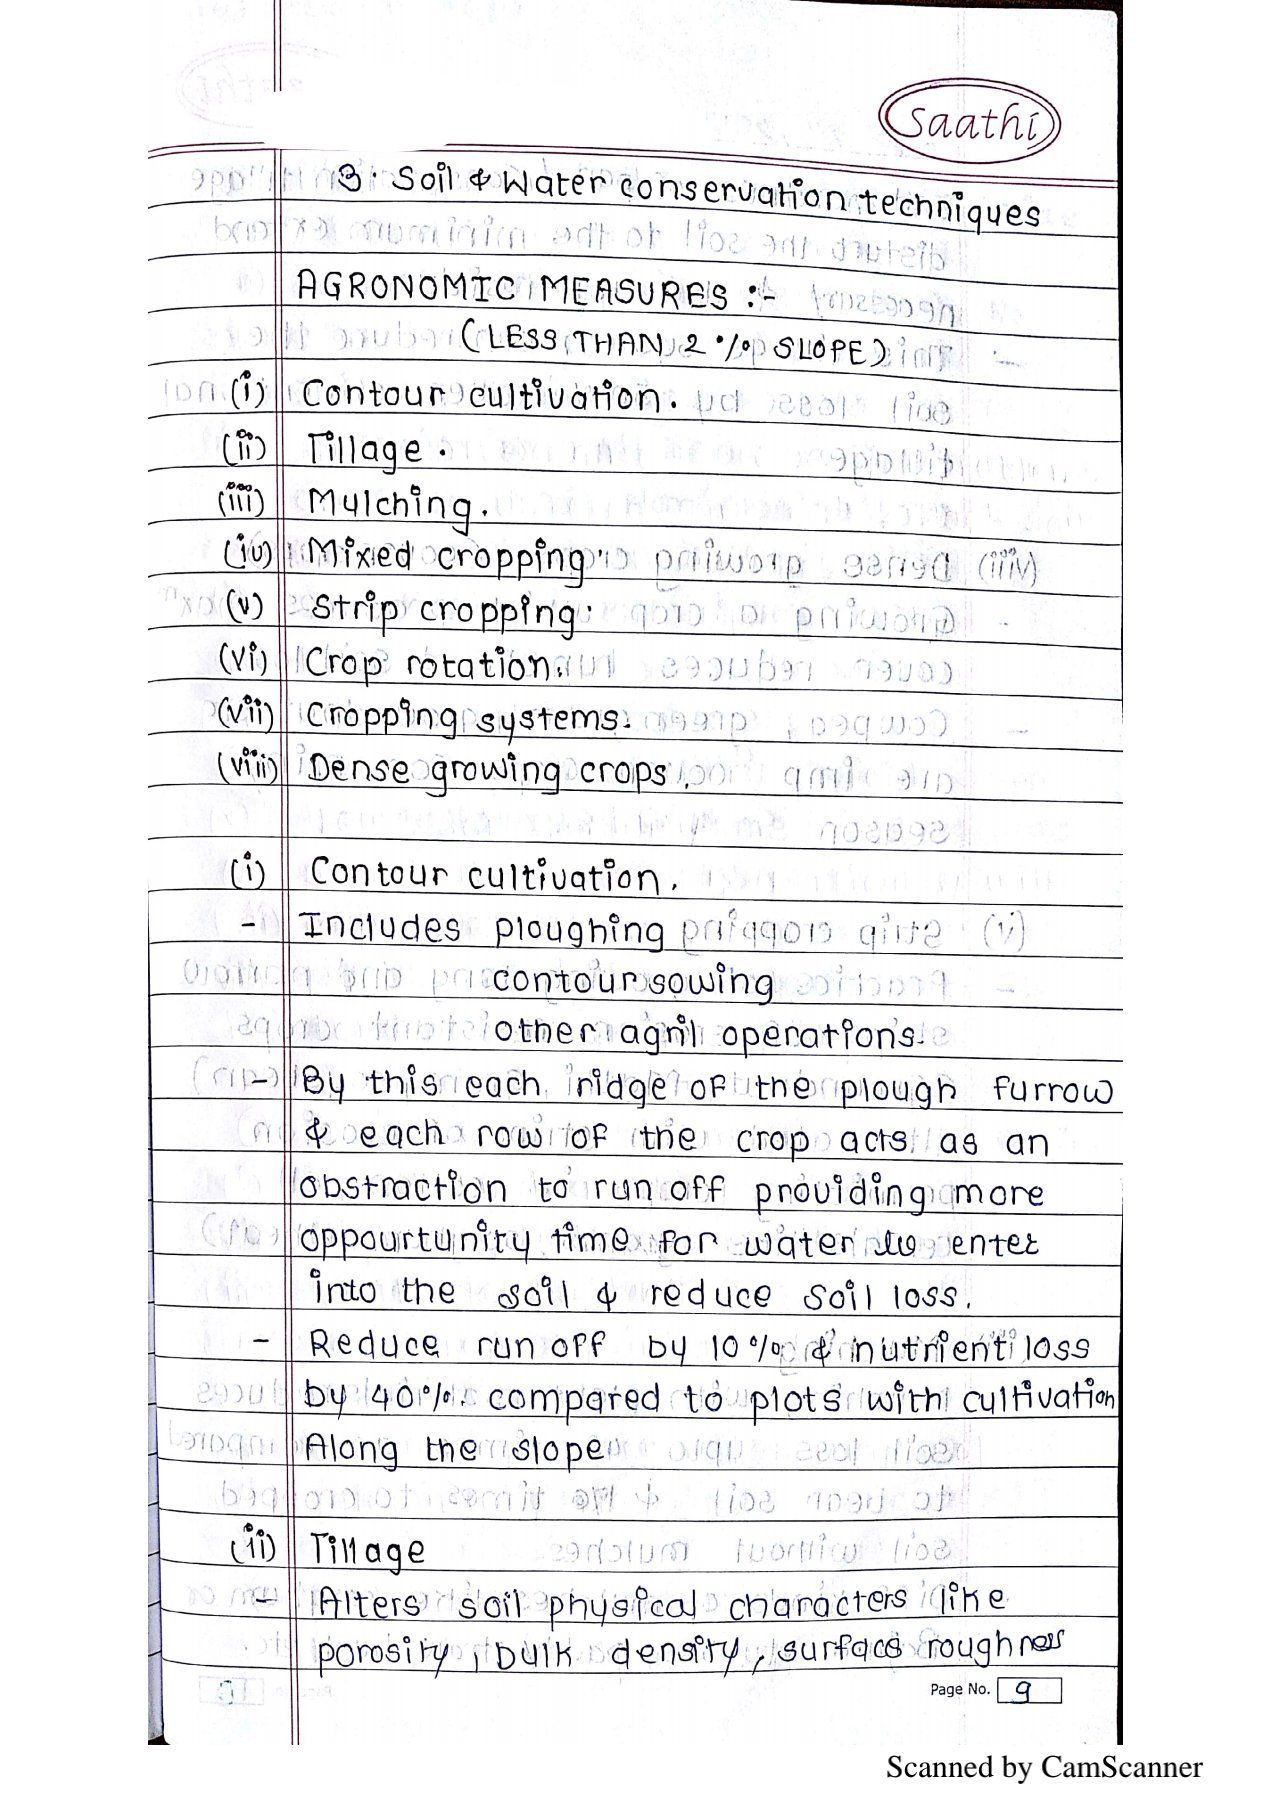 Saathi
3. Soil & Water conservation techniques
AGRONOMIC MEASURES :-
(LESS THAN 2 % SLOPE)
(i) Contour cultivation.
(ii) Tillage.
(iii) Mulching.
(iv) Mixed cropping.
(v) Strip cropping.
(vi) Crop rotation.
(vii) Cropping systems.
(viii) Dense growing crops.
(i) Contour cultivation.
- Includes ploughing
contour sowing
other agril operations.
- By this each ridge of the plough furrow
& each row of the crop acts as an
obstraction to run off providing more
oppourtunity time for water to enter
into the soil & reduce soil loss.
- Reduce run off by 10% & nutrient loss
by 40%. compared to plots with cultivation
Along the slope
(ii) Tillage
- Alters soil physical characters like
porosity, bulk density, surface roughness
Page No. 9
Scanned by CamScanner